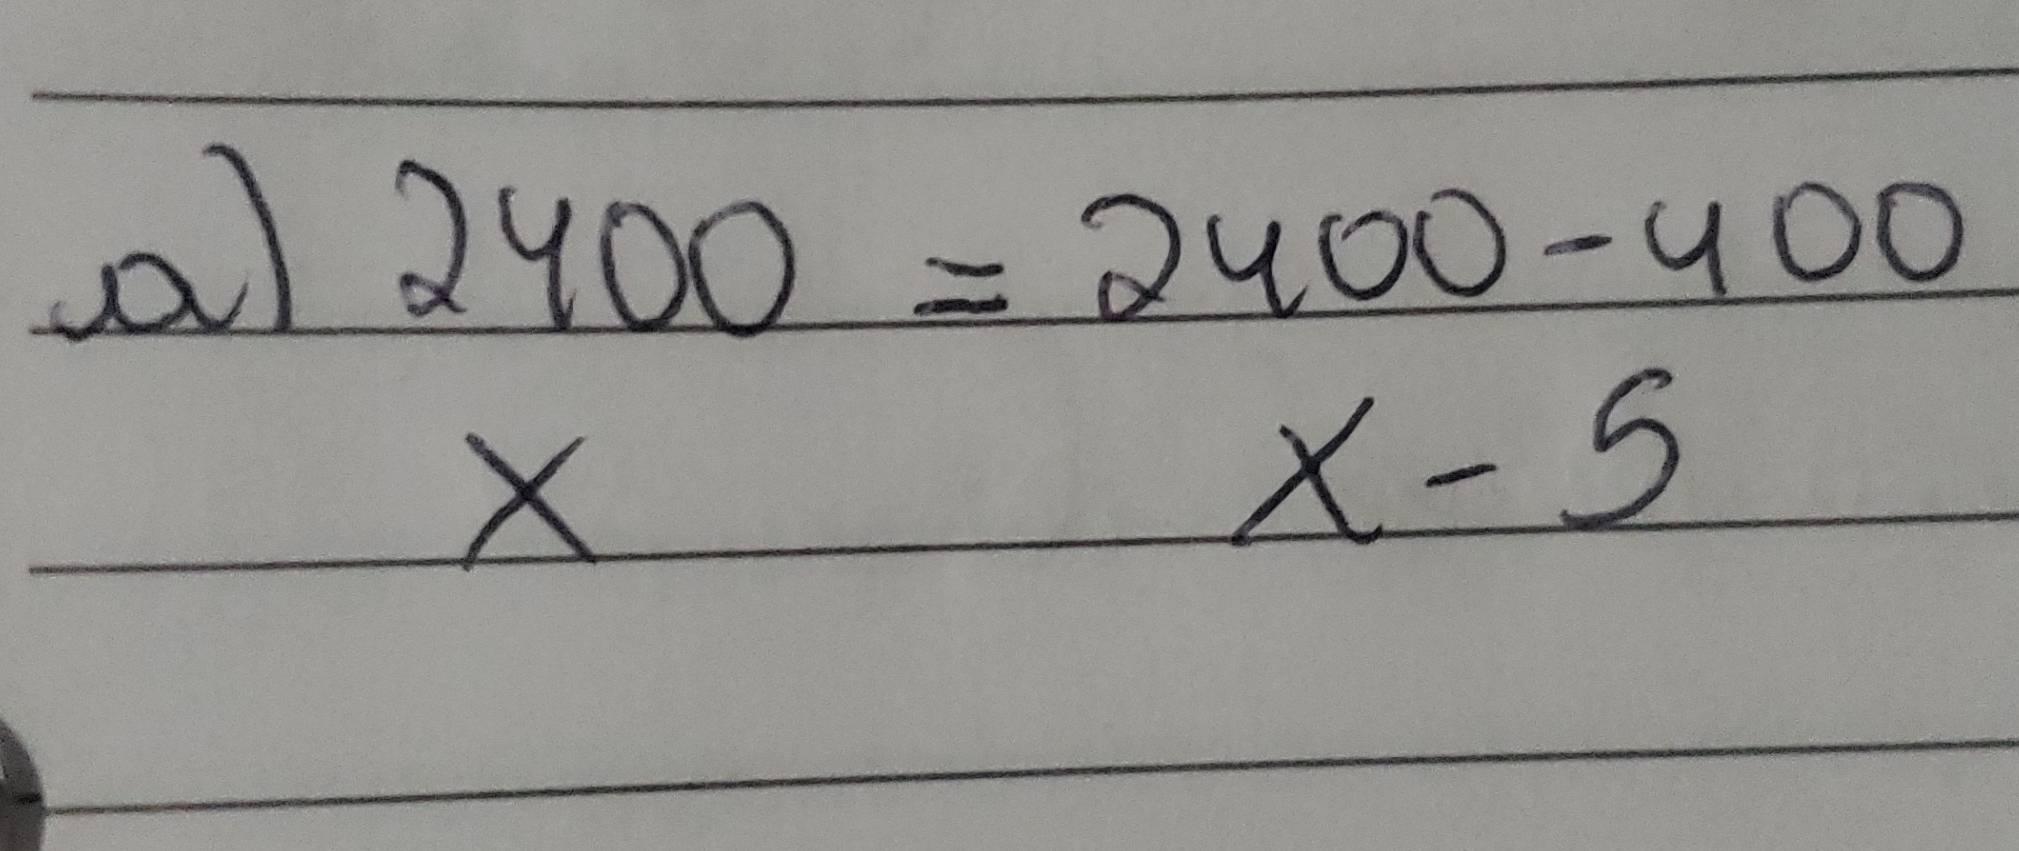 a) 2400 = 2400-400
x x-5